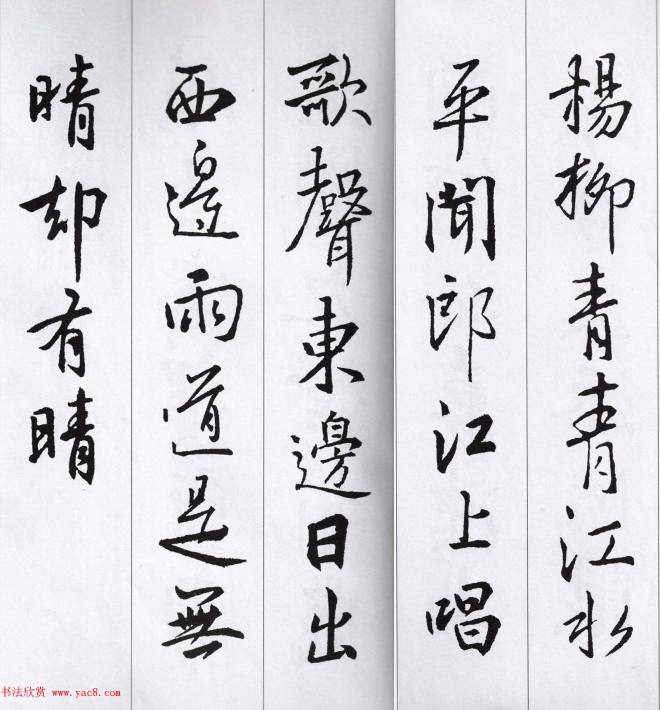 楊柳青青江水
平聞郎江上唱
歌聲東邊日出
西邊雨道是無
晴却有晴
书法欣赏 www.yac8.com